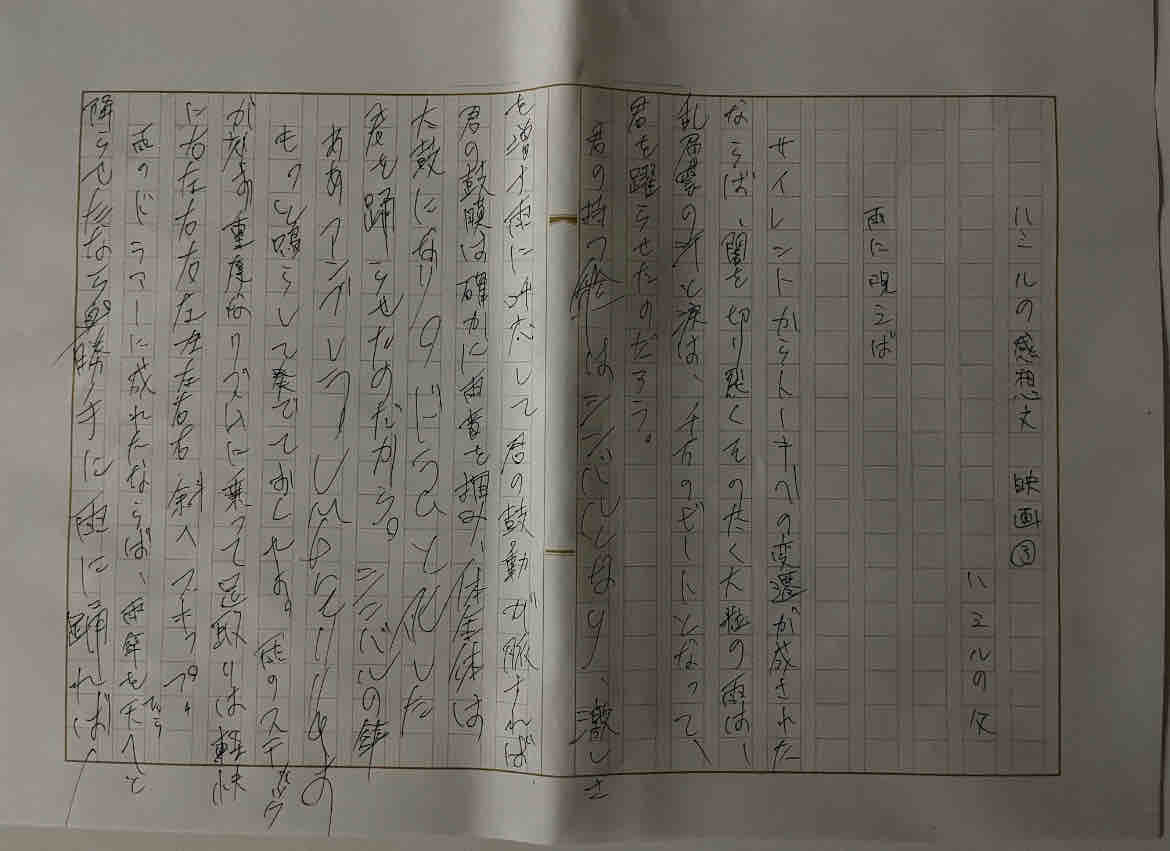 ハミルの感想文 映画③
ハミルの父
雨に唄えば
サイレントからトーキーへの変遷が成された
ならば、闇を切り裂くそのたく大粒の雨は、
乱層雲の汗と涙は、千方のビートとなって、
君を躍らせたのだろう。
君の持つ傘はシンバルとなり、激しさ
を増す雨にみだして君の鼓動が脈すれば、
君の鼓膜は確かに雨音を掴み、体全体は
太鼓になり のドラムと化した
君を踊らせたのだから。シンバルの
ああアンブレラ
もっと鳴らして奏でておくれよ。 のステップ
が 重なりリズムに乗って足取りは軽快
に右左右左左左左右右斜へスキップ。
雨のドラマーに成れたならば、雨傘を天へと
降らせたなら 勝手に雨に踊れば